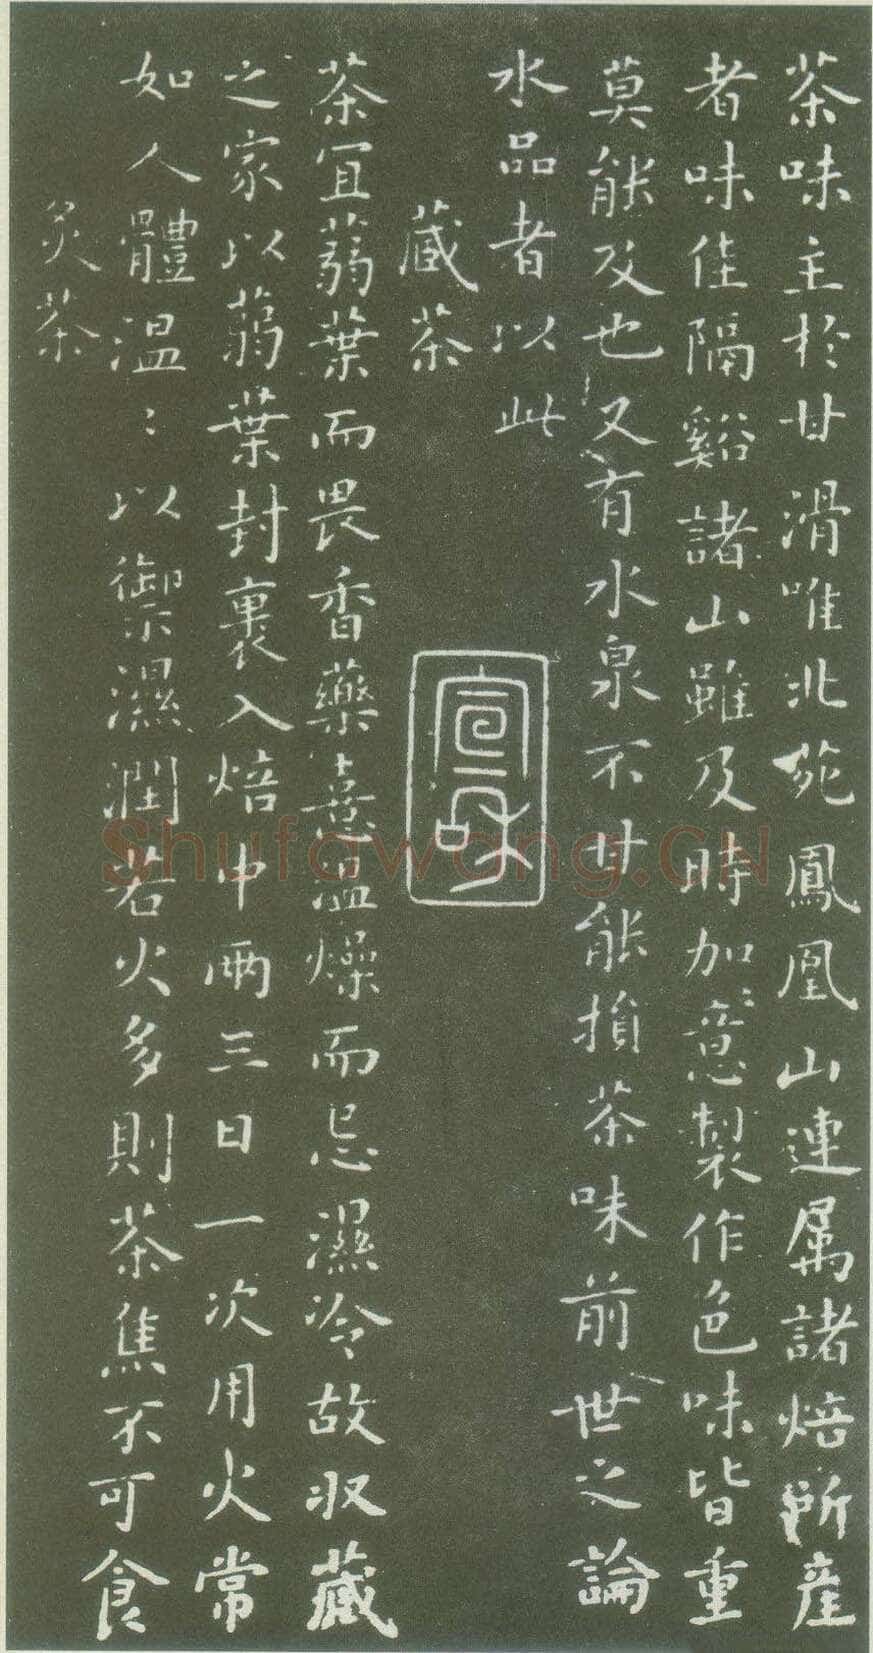 茶味主於甘滑唯北苑鳳凰山連屬諸焙所產
者味佳隔谿諸山雖及時加意製作色味皆重
莫能及也又有水泉不甘能損茶味前世之論
水品者以此
藏茶
茶宜蒻葉而畏香藥喜溫燥而忌濕冷故収藏
之家以蒻葉封裹入焙中兩三日一次用火常
如人體溫:以禦濕潤若火多則茶焦不可食
炙茶
Shufawang.CN